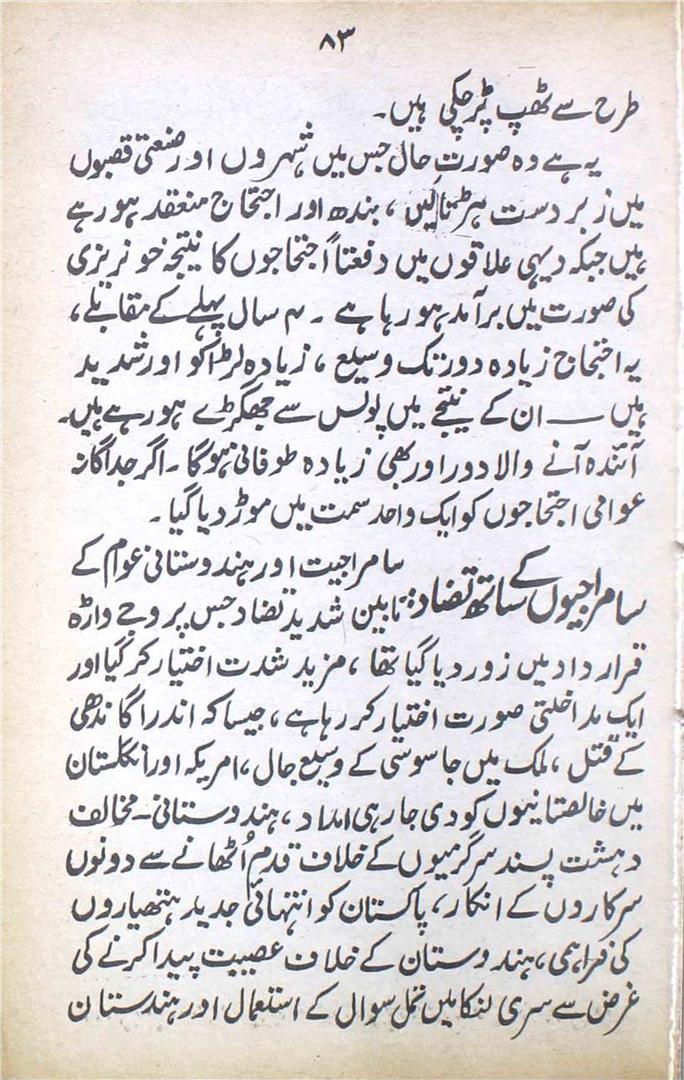 ۸۳
طرح سے ٹھپ پڑ چکی ہیں۔
یہ ہے وہ صورتِ حال جس میں شہروں اور صنعتی قصبوں
میں زبردست ہڑتالیں، بندھ اور احتجاج منعقد ہو رہے
ہیں جبکہ دیہی علاقوں میں دفعتاً احتجاجوں کا نتیجہ خونریزی
کی صورت میں برآمد ہو رہا ہے۔ ۴ سال پہلے کے مقابلے،
یہ احتجاج زیادہ دور تک وسیع، زیادہ لڑاکو اور شدید
ہیں — ان کے نتیجے میں پولس سے جھگڑے ہو رہے ہیں۔
آئندہ آنے والا دور اور بھی زیادہ طوفانی ہوگا۔ اگر جداگانہ
عوامی احتجاجوں کو ایک واحد سمت میں موڑ دیا گیا۔
سامراجیوں کے ساتھ تضاد: سامراجیت اور ہندوستانی عوام کے
مابین شدید تضاد جس پر وجے واڑہ
قرارداد میں زور دیا گیا تھا، مزید شدت اختیار کر گیا اور
ایک مداخلتی صورت اختیار کر رہا ہے، جیسا کہ اندرا گاندھی
کے قتل، ملک میں جاسوسی کے وسیع جال، امریکہ اور انگلستان
میں خالصتانیوں کو دی جا رہی امداد، ہندوستانی۔مخالف
دہشت پسند سرگرمیوں کے خلاف قدم اُٹھانے سے دونوں
سرکاروں کے انکار، پاکستان کو انتہائی جدید ہتھیاروں
کی فراہمی، ہندوستان کے خلاف عصبیت پیدا کرنے کی
غرض سے سری لنکا میں تمل سوال کے استعمال اور ہندستان